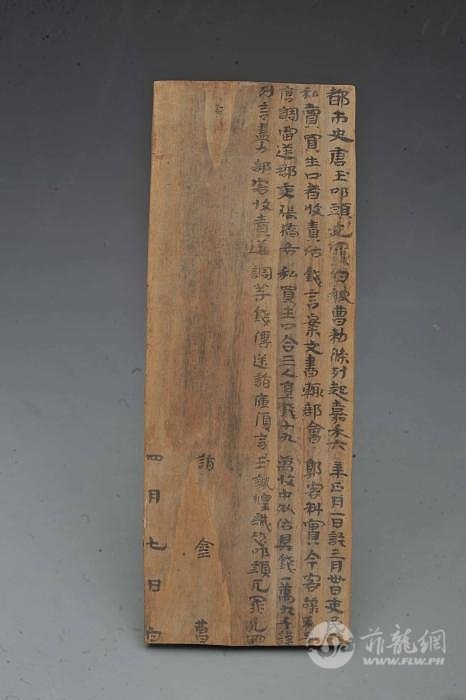 都市史唐玉叩頭死罪白被曹勑條列起嘉禾六年正月一日訖三月卅日吏民
私賣買生口者收責估錢言案文書輒部會郭客料實今客辭男子
唐調雷逆郡吏張橋各私買生口合三人直錢十九萬收中外估具錢一萬九千謹
列言盡力部客收責逆調等錢傳送詣庫復言玉誠惶誠恐叩頭死罪死罪
詣金曹
四月七日白
菲龍網
WWW.FLW.PH